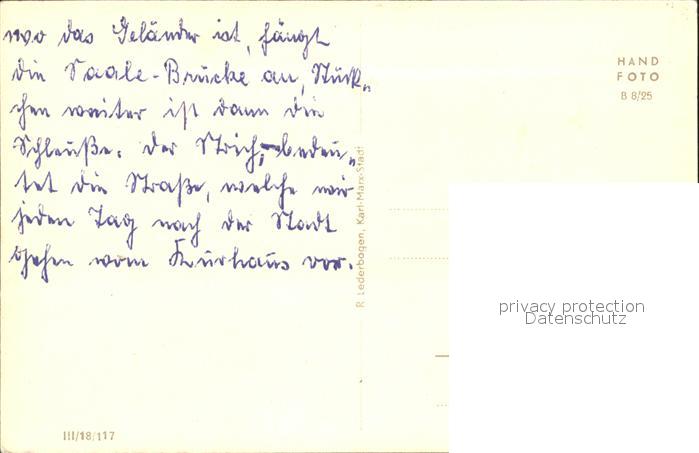 wo das Geländer ist, fängt
die Saale-Brücke an, Stück„
chen weiter ist dann die
Schleuße. Der Strich, bedeu„
tet die Straße, welche wir
jeden Tag nach der Stadt
gehen vom Kurhaus vor.
HAND
FOTO
B 8/25
R. Lederbogen, Karl-Marx-Stadt
privacy protection
Datenschutz
III/18/117